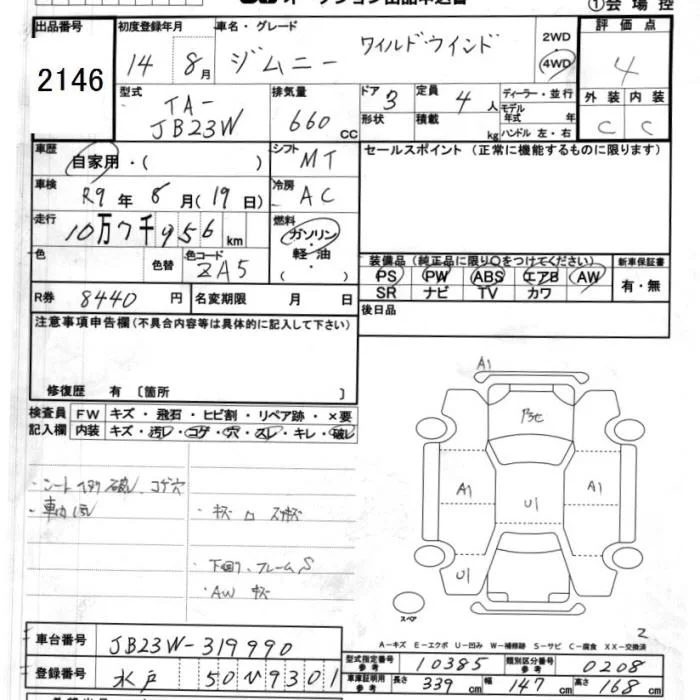 ①会場控
出品番号
2146
初度登録年月
14 8月
車名・グレード
ジムニー ワイルドウインド
2WD
4WD
評価点
4
外装 内装
C C
型式
TA-
JB23W
排気量
660 cc
ドア 3
形状
定員 4 人
積載 kg
ディーラー・並行
モデル年式 年
ハンドル 左・右
車歴
自家用・( )
シフト
MT
セールスポイント (正常に機能するものに限ります)
車検
R9年 8月(19日)
冷房
AC
走行
10万7千956 km
燃料
ガソリン
軽油
( )
色
色替
色コード
ZA5
装備品 (純正品に限り○をつけてください)
PS PW ABS エアB AW
SR ナビ TV カワ
新車保証書
有・無
R券 8440 円
名変期限 月 日
後日品
注意事項申告欄(不具合内容等は具体的に記入して下さい)
修復歴 有 〔箇所 〕
検査員記入欄
FW キズ・飛石・ヒビ割・リペア跡・×要
内装 キズ・汚レ・コゲ・穴・スレ・キレ・破レ
コゲ穴
・下回り、フレームS
・AW キズ
A1
A1
U1
A1
U1
スペア
2
A-キズ E-エクボ U-凹み W-補修跡 S-サビ C-腐食 XX-交換済
車台番号 JB23W-319990
登録番号 水戸 50 ひ 9301
型式指定番号 参考 10385
類別区分番号 参考 0208
車庫証明用 参考 長さ 339 cm 幅 147 cm 高さ 168 cm